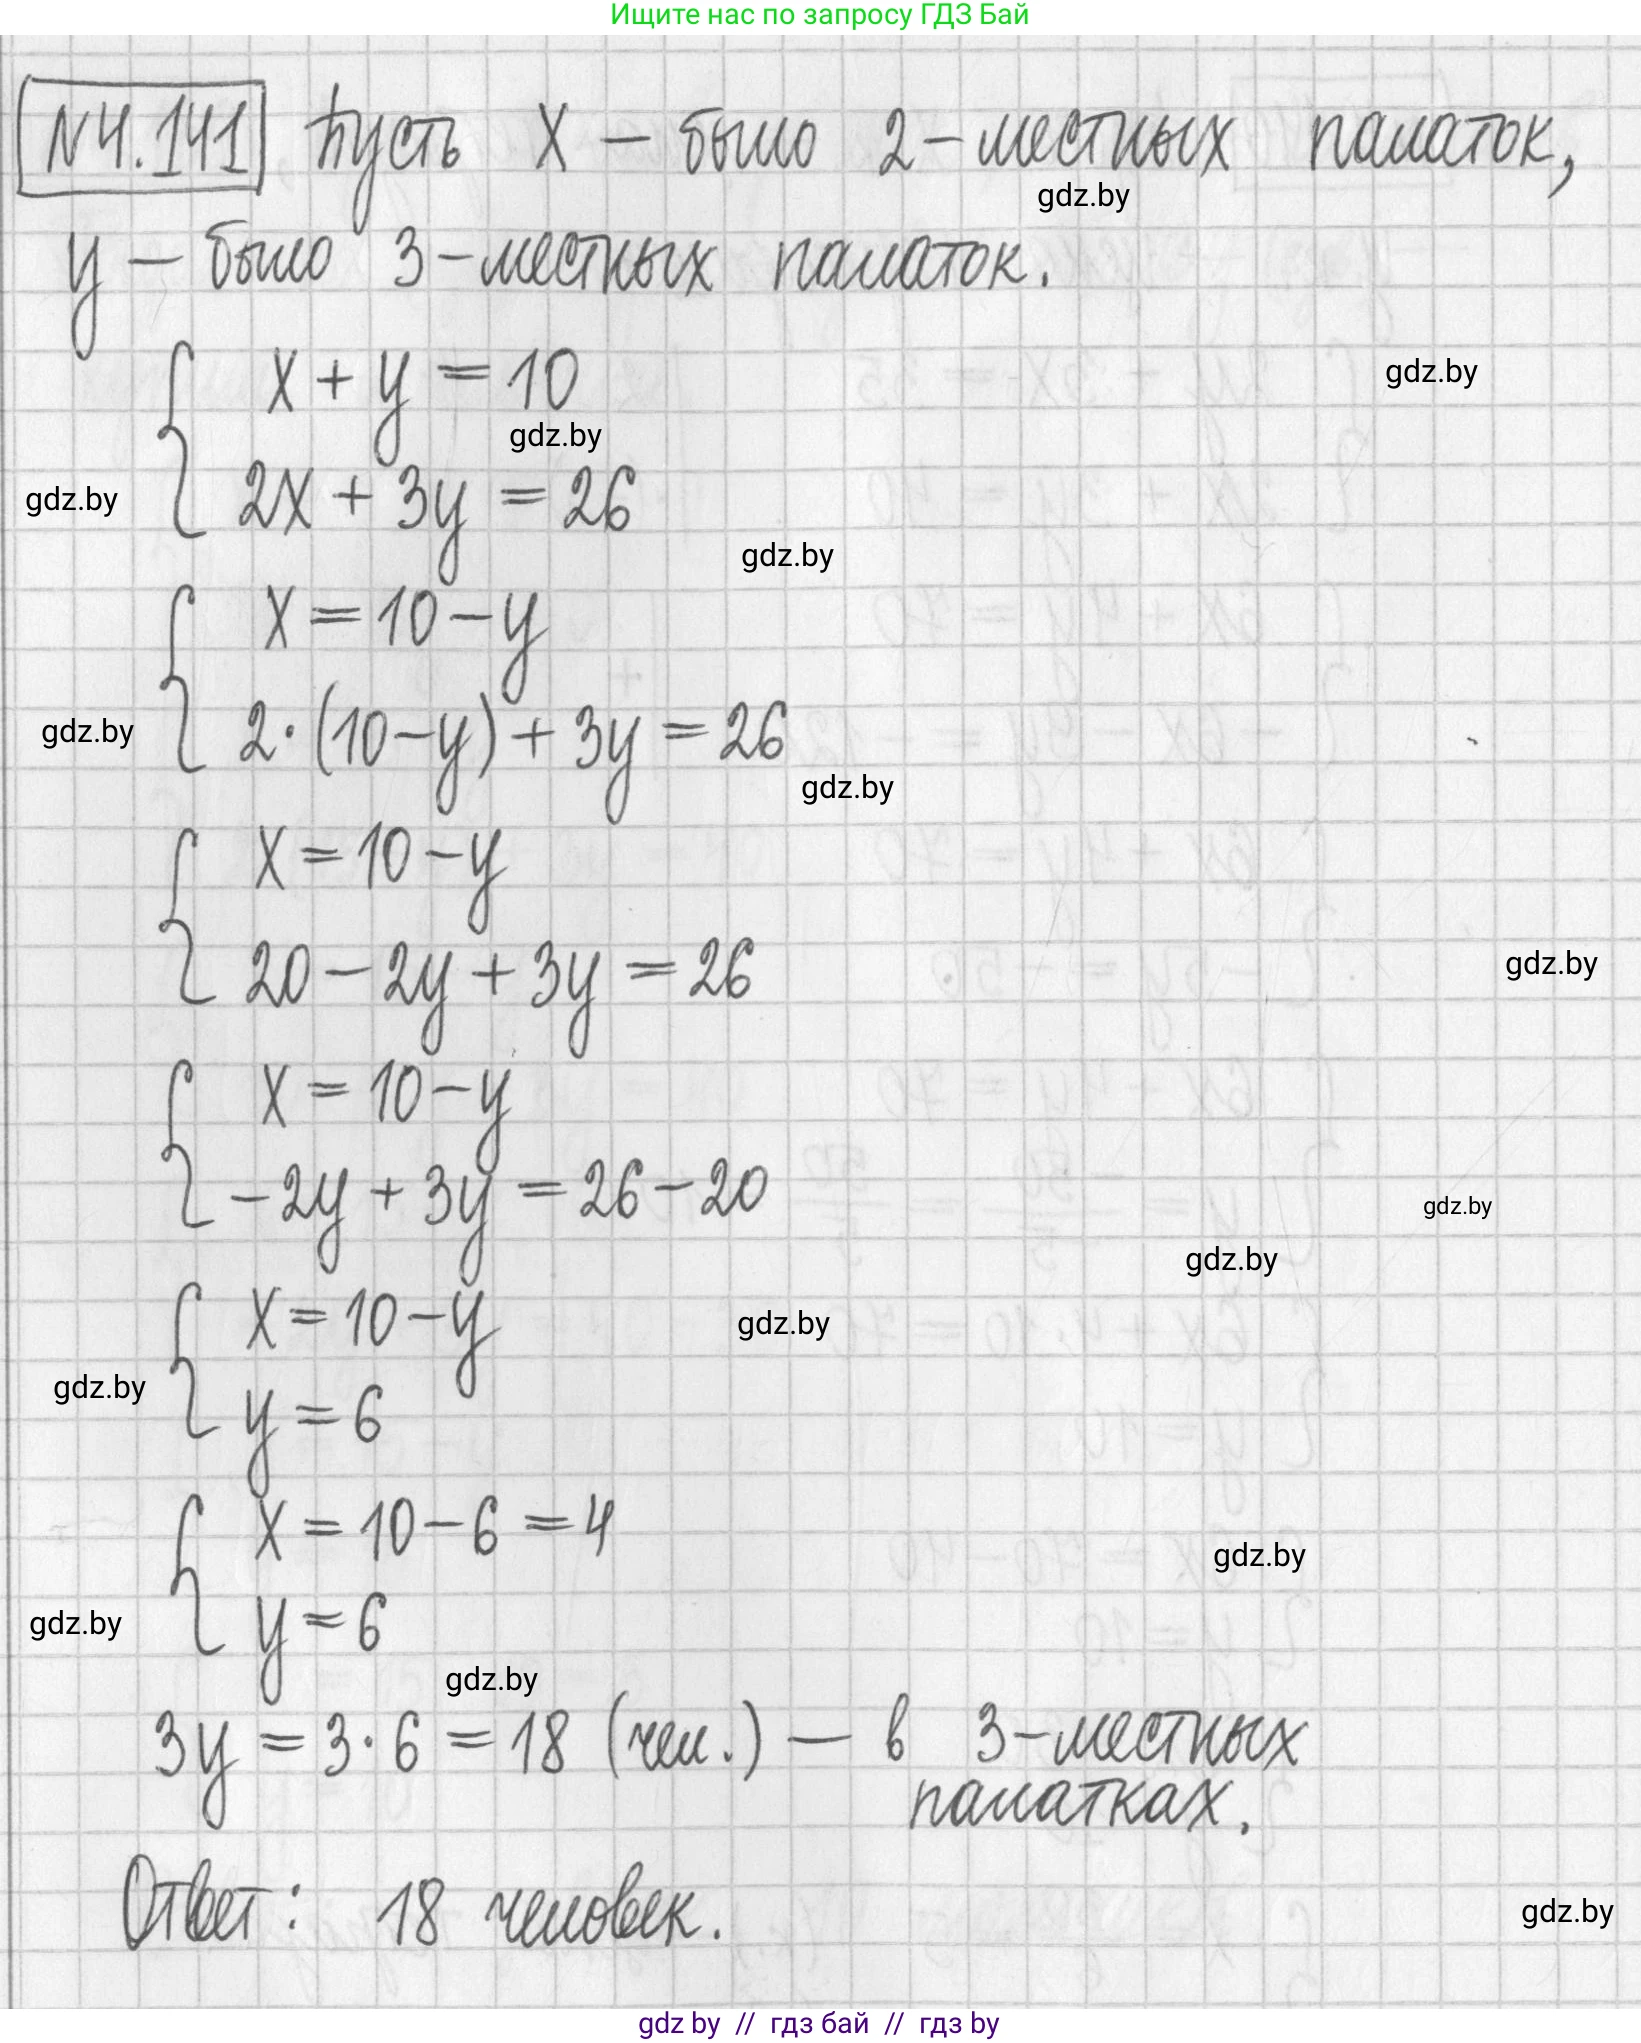 Ищите нас по запросу ГДЗ Бай
N4.141 Пусть x – было 2-местных палаток,
gdz.by
y – было 3-местных палаток.
x + y = 10
gdz.by
gdz.by
2x + 3y = 26
gdz.by
gdz.by
x = 10 – y
2·(10–y) + 3y = 26
gdz.by
gdz.by
x = 10 – y
20 – 2y + 3y = 26
gdz.by
x = 10 – y
–2y + 3y = 26 – 20
gdz.by
gdz.by
x = 10 – y
gdz.by
gdz.by
y = 6
x = 10 – 6 = 4
gdz.by
y = 6
gdz.by
gdz.by
3y = 3·6 = 18 (чел.) – в 3-местных
палатках.
Ответ: 18 человек.
gdz.by
gdz by // гдз бай // гдз by